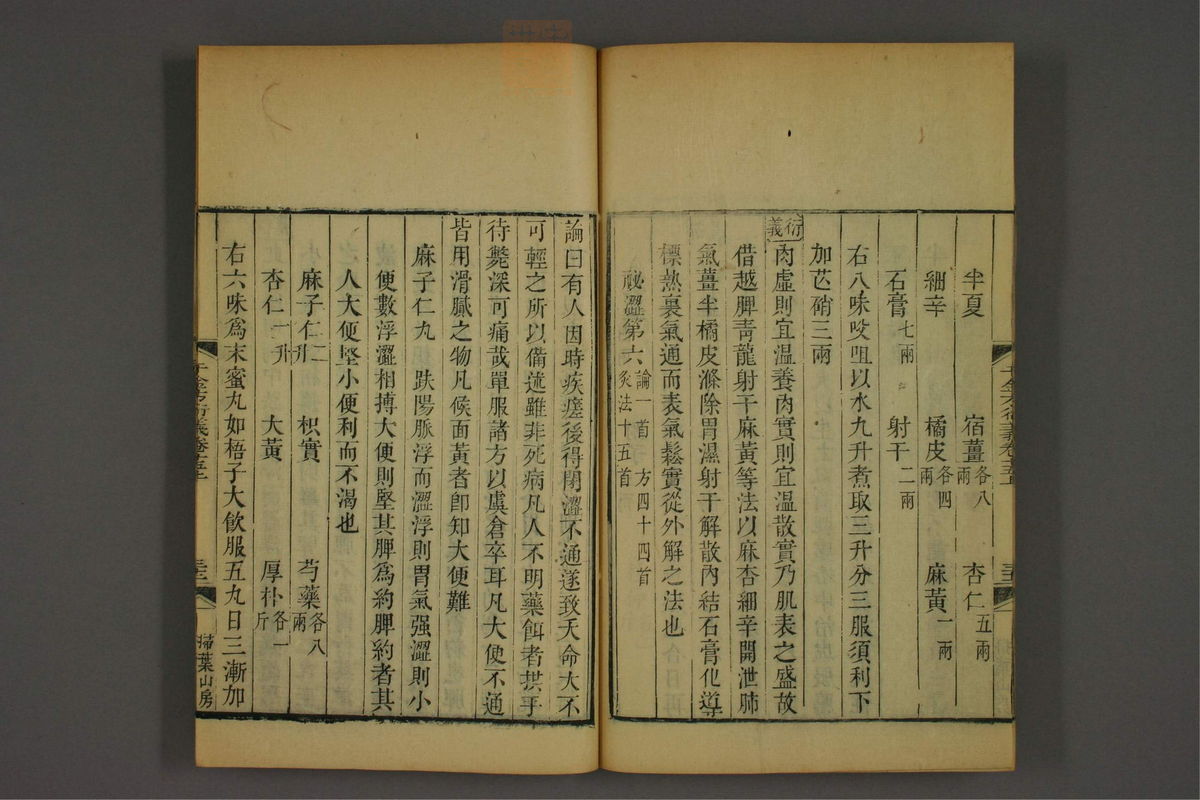 半夏 宿薑各八兩 杏仁五兩
細辛 橘皮各四兩 麻黃一兩
石膏七兩 射干二兩
右八味㕮咀以水九升煮取三升分三服須利下
加芒硝三兩
衍義肉虛則宜溫養肉實則宜溫散實乃肌表之盛故
借越脾靑龍射干麻黃等法以麻杏細辛開泄肺
氣薑半橘皮滌除胃濕射干解散內結石膏化導
標熱裏氣通而表氣鬆實從外解之法也
祕澀第六論一首 方四十四首 灸法十五首
論曰有人因時疾瘥後得閉澀不通遂致夭命大不
可輕之所以備述雖非死病凡人不明藥餌者拱手
待斃深可痛哉單服諸方以虞倉卒耳凡大便不通
皆用滑膩之物凡候面黃者卽知大便難
麻子仁丸 趺陽脈浮而澀浮則胃氣强澀則小
便數浮澀相搏大便則堅其脾爲約脾約者其
人大便堅小便利而不渴也
麻子仁二升 枳實 芍藥各八兩
杏仁一升 大黃 厚朴各一斤
右六味爲末蜜丸如梧子大飮服五丸日三漸加
千金方衍義卷十五
三十二
掃葉山房